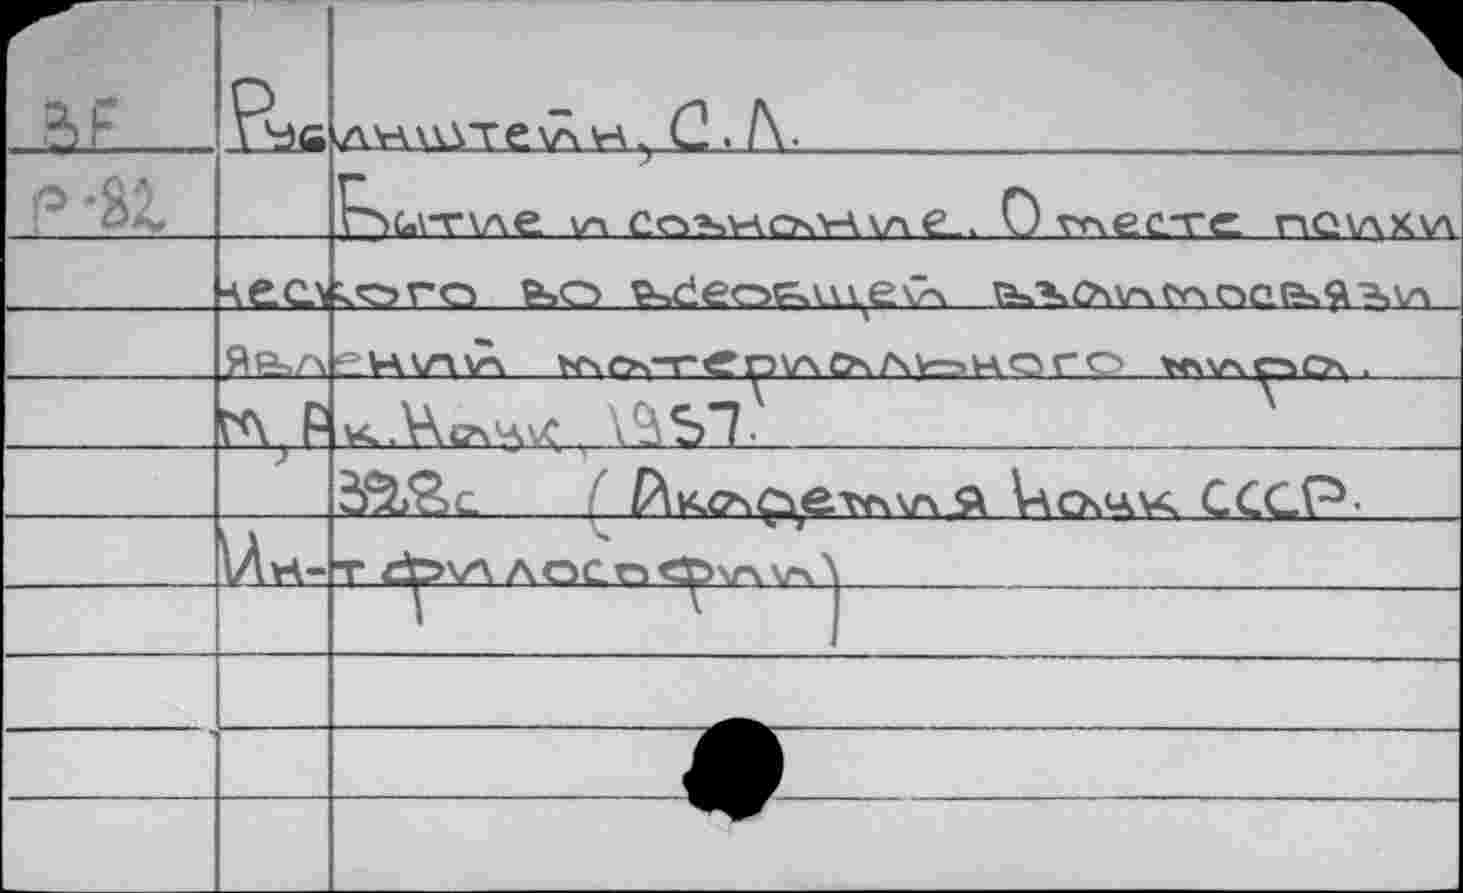 BF Рубинштейн, С.Л.
Р-82 Бытие и сознание. О месте психи
ческого во всеобщей взаимосвязи
явлений материального мира.
М, Ак.Наук, 1957.
328с (Академия Наук СССР.
Ин-т философии)